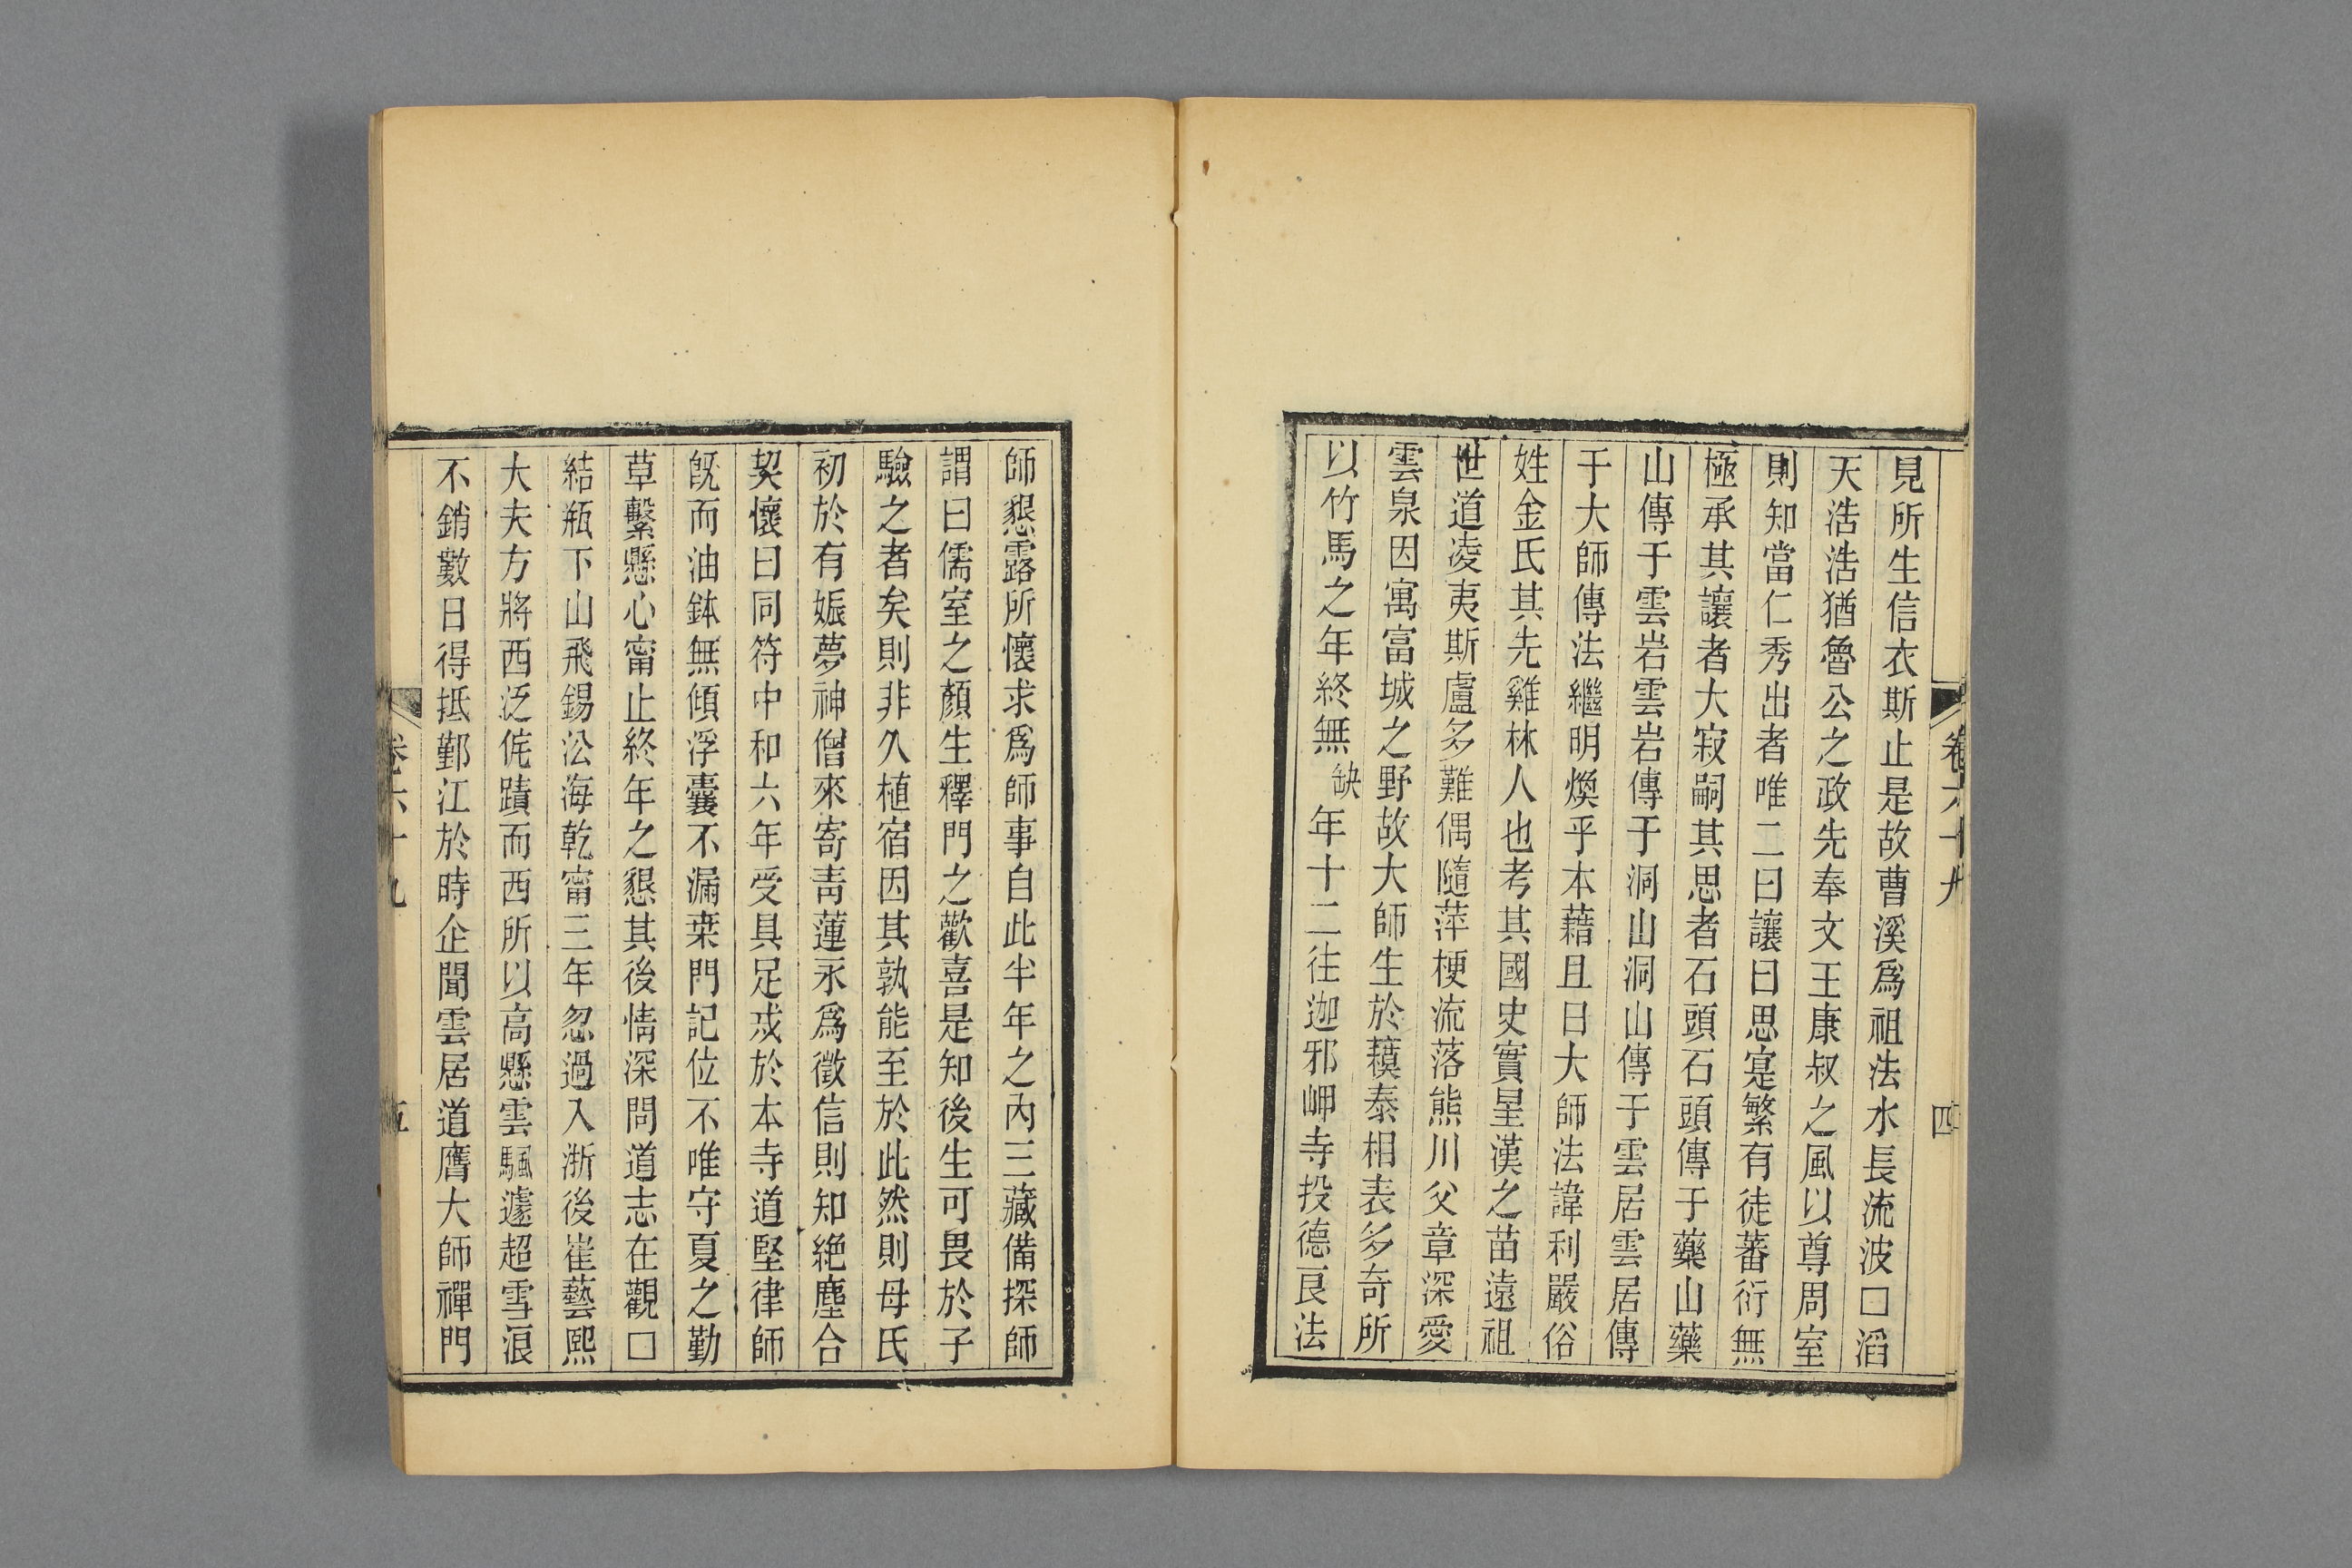 卷六十九
四
見所生信衣斯止是故曹溪爲祖法水長流波□滔
天浩浩猶魯公之政先奉文王康叔之風以尊周室
則知當仁秀出者唯二曰讓曰思寔繁有徒蕃衍無
極承其讓者大寂嗣其思者石頭石頭傳于藥山藥
山傳于雲岩雲岩傳于洞山洞山傳于雲居雲居傳
于大師傳法繼明煥乎本藉且曰大師法諱利嚴俗
姓金氏其先雞林人也考其國史實星漢之苗遠祖
世道凌夷斯盧多難偶隨萍梗流落熊川父章深愛
雲泉因寓富城之野故大師生於蘓泰相表多奇所
以竹馬之年終無缺年十二往迦邪岬寺投德良法
師懇露所懷求爲師事自此半年之內三藏備探師
謂曰儒室之顏生釋門之歡喜是知後生可畏於子
驗之者矣則非久植宿因其孰能至於此然則母氏
初於有娠夢神僧來寄靑蓮永爲徵信則知絶塵合
契懷曰同符中和六年受具足戒於本寺道堅律師
旣而油鉢無傾浮囊不漏桒門記位不唯守夏之勤
草繫懸心甯止終年之懇其後情深問道志在觀□
結瓶下山飛錫㳂海乾甯三年忽過入浙後崔藝熙
大夫方將西泛侂蹟而西所以高懸雲颿遽超雪浪
不銷數日得抵鄞江於時企聞雲居道膺大師禪門
卷六十九
五